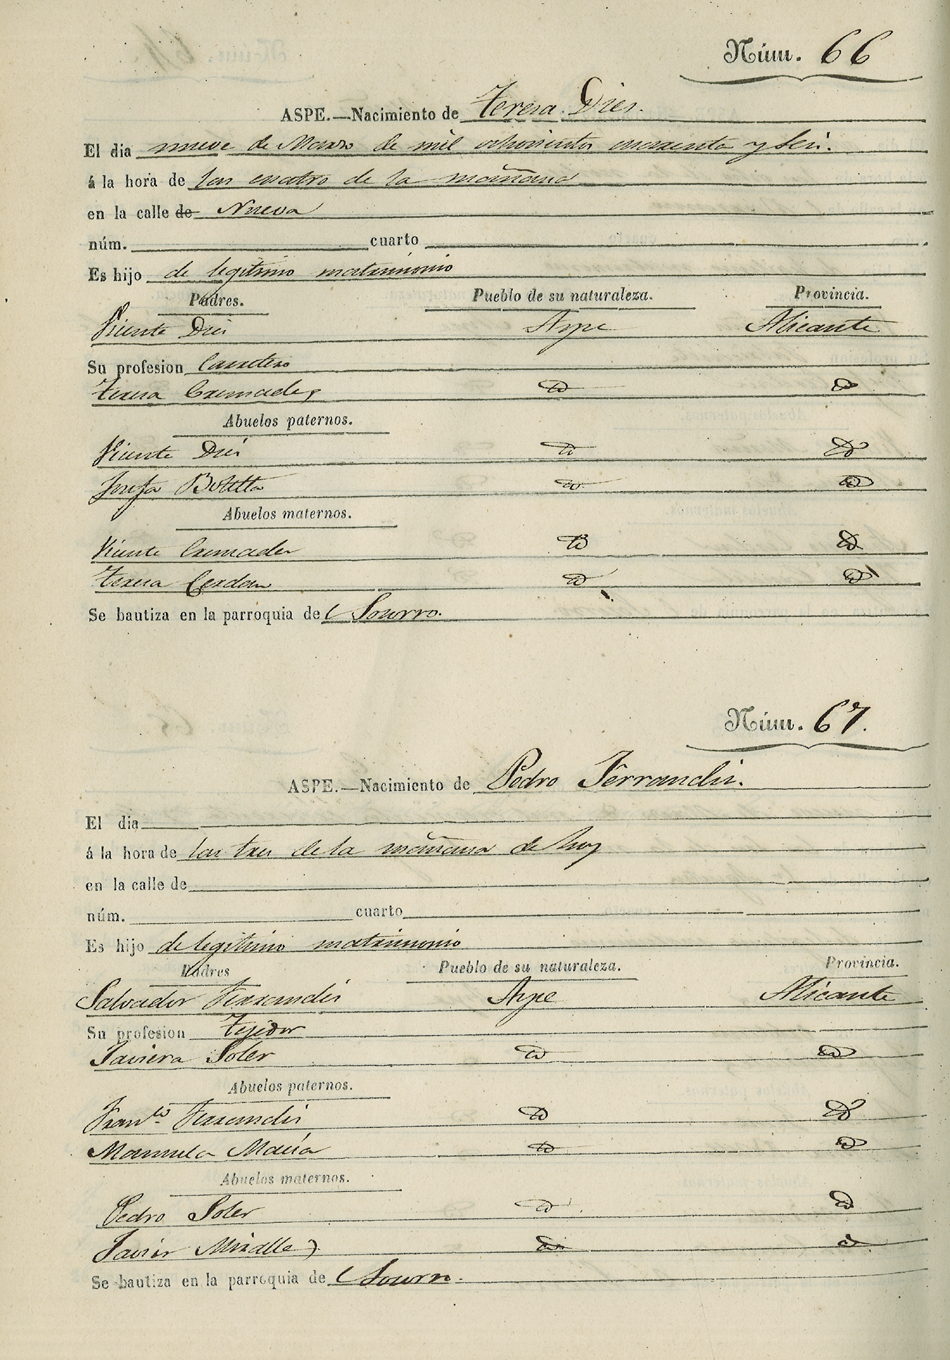 Núm. 66
ASPE.—Nacimiento de Teresa Dies.
El dia nueve de Marzo de mil ochocientos cuarenta y seis.
á la hora de las cuatro de la mañana
en la calle de Nueva
núm. cuarto
Es hijo de legitimo matrimonio
Padres. Pueblo de su naturaleza. Provincia.
Vicente Dies Aspe Alicante
Su profesion
Teresa Cremades id id
Abuelos paternos.
Vicente Dies id id
Josefa Botella id id
Abuelos maternos.
Vicente Cremades id id
Teresa Cerdan id id
Se bautiza en la parroquia de Socorro.
Núm. 67.
ASPE.—Nacimiento de Pedro Ferrandis.
El dia
á la hora de las tres de la mañana de hoy
en la calle de
núm. cuarto
Es hijo de legitimo matrimonio
Padres Pueblo de su naturaleza. Provincia.
Salvador Ferrandis Aspe Alicante
Su profesion Tejedor
Javiera Soler id id
Abuelos paternos.
Fran.co Ferrandis id id
Manuela Maria id id
Abuelos maternos.
Pedro Soler id id
Miralles id id
Se bautiza en la parroquia de Socorro.